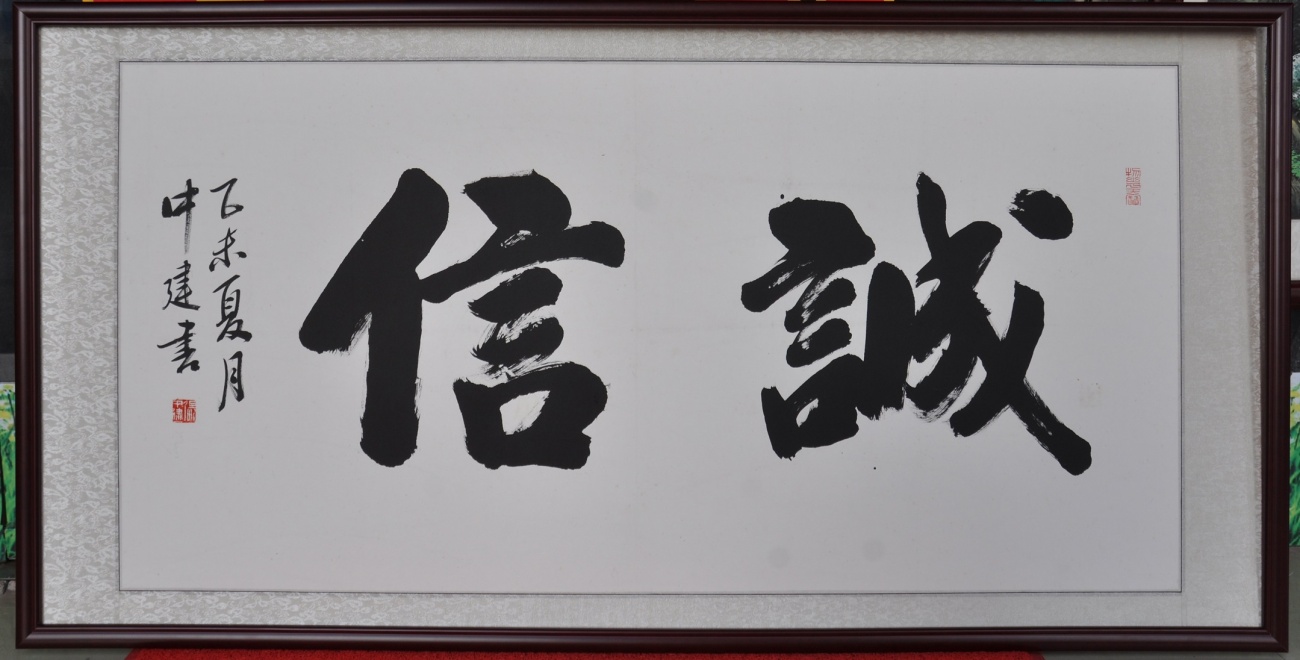 誠信
乙未夏月
中建书